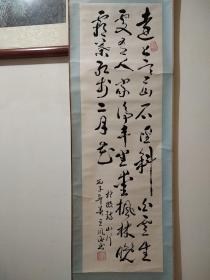 遠上寒山石徑斜白雲生
處有人家停車坐愛楓林晚
霜葉紅於二月花
杜牧詩山行
丙子年